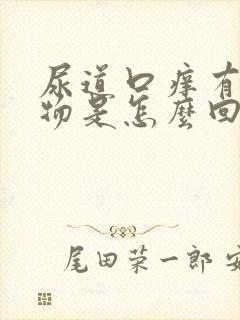 尿道口痒有
物是怎麼回
尾田荣一郎 安